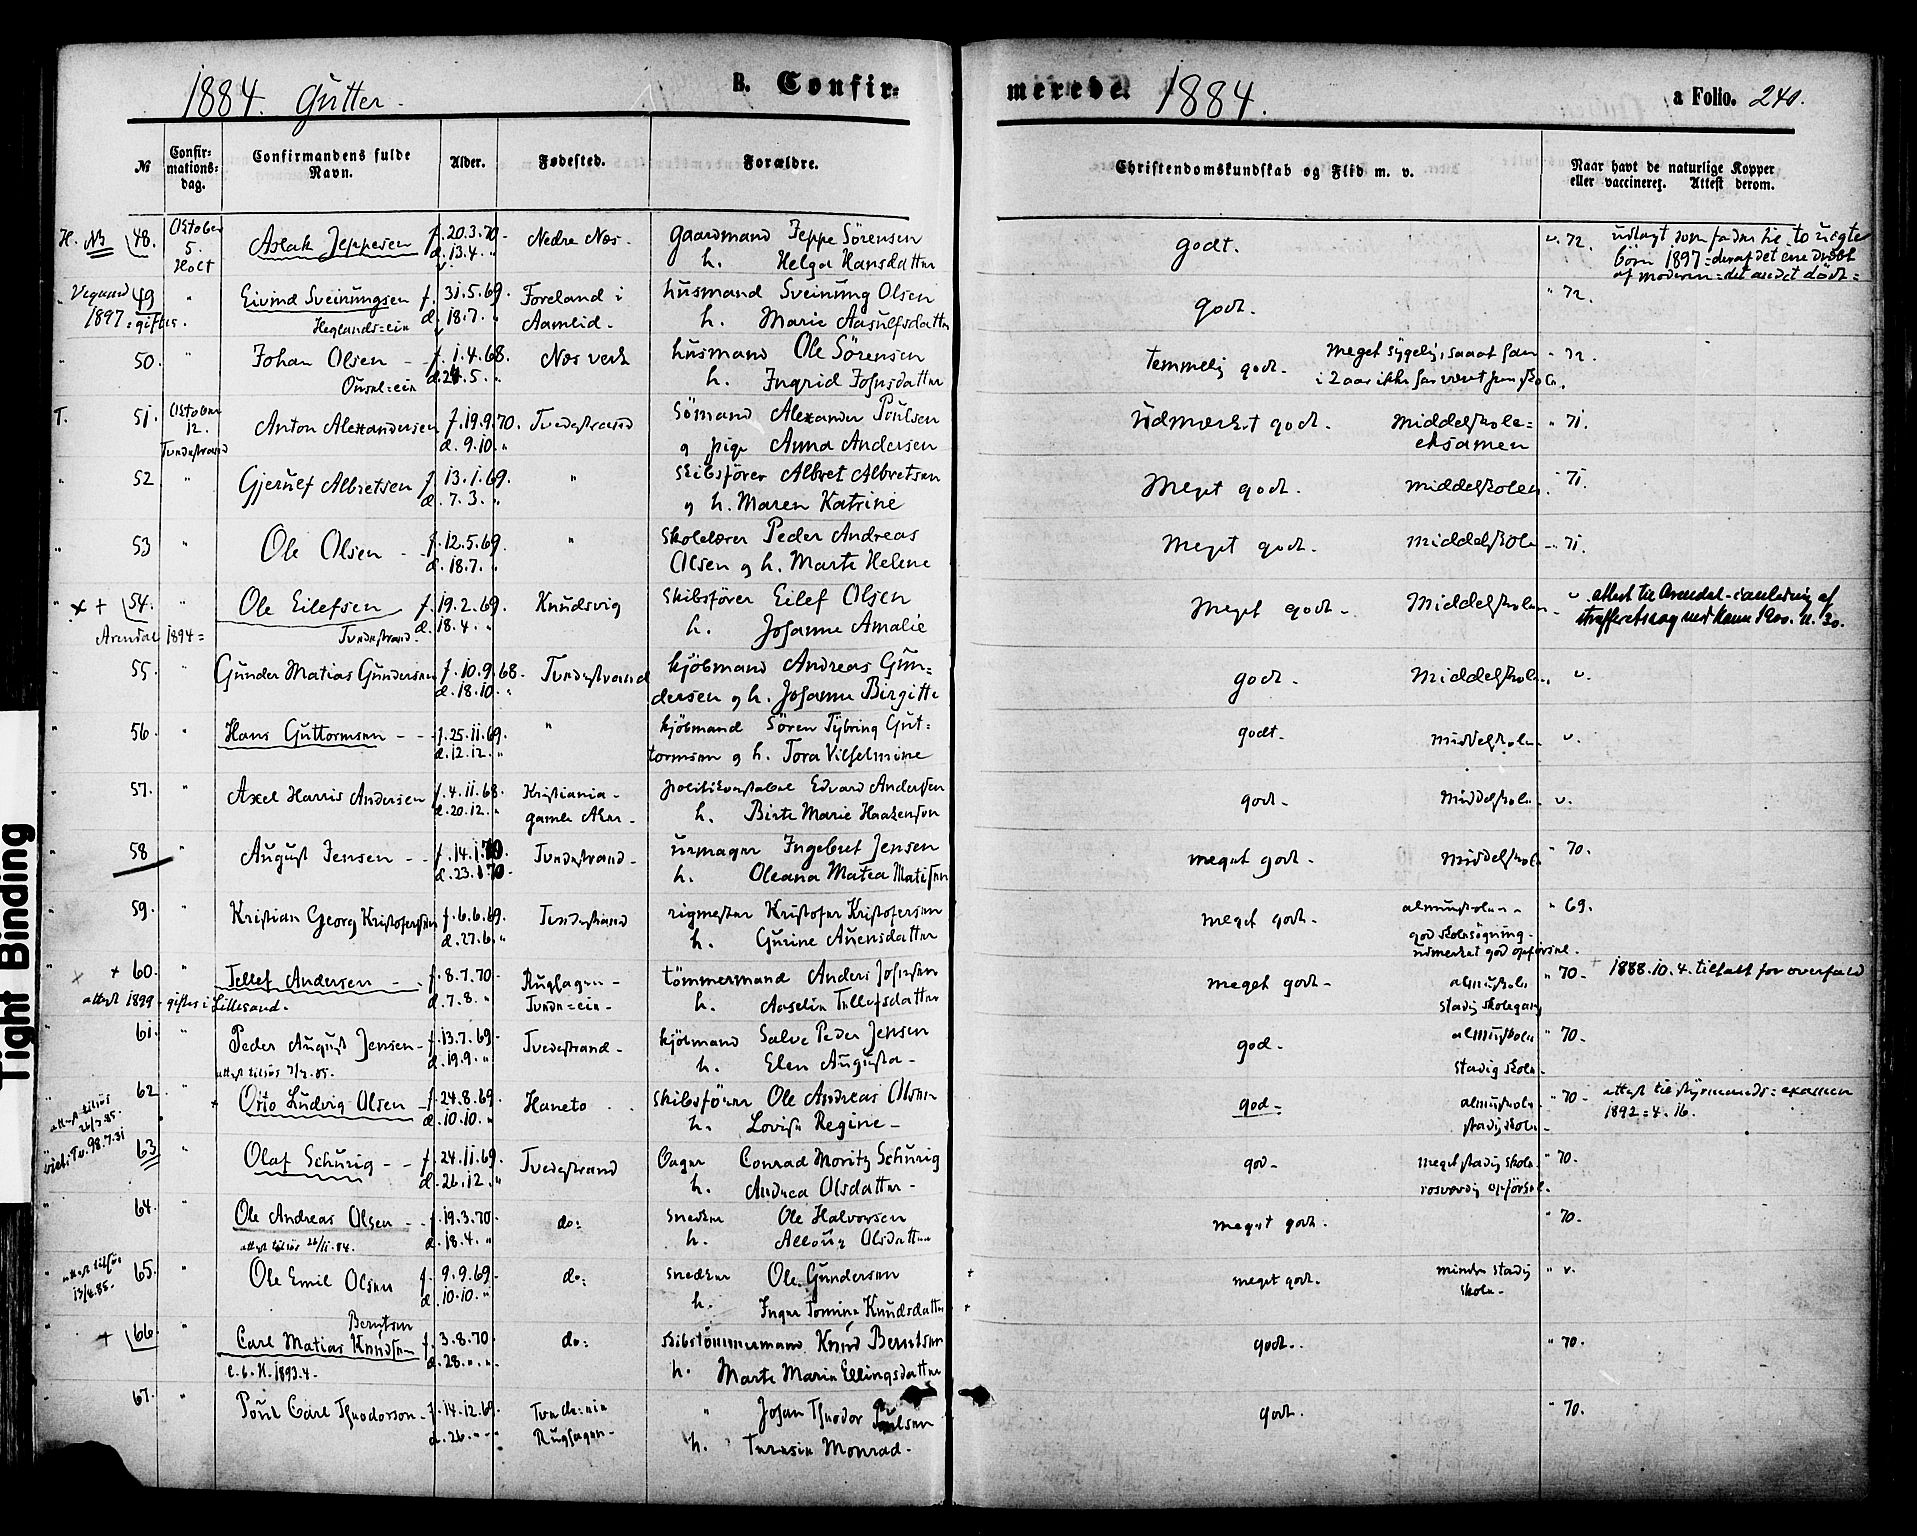 1884. Gutter.
B. Confir-
merede. 1884.
a Folio. 240.
№
Confir-
mations-
dag.
Confirmandens fulde
Navn.
Alder.
Fødested.
Forældre.
Christendomskundskab og Flid m. v.
Naar havt de naturlige Kopper
eller vaccineret. Attest derom.
H. 48. Oktober 5. Holt
Aslak Jeppesen f. 20.3.70. Nedre Nes. gaardmand Jeppe Sörensen
d. 13.4. " h. Helga Hansdatter
godt. v. 72. udlagt som fader til to uegte
børn 1897 = deraf det ene dræbt
af moderen = det andet dødt =
Vegard 49 "
1897 = giftes.
Eivind Sveinungsen f. 31.5.69. Foreland i husmand Sveinung Olsen
Heglands=ein d. 18.7. " Aamlid. h. Marie Aasulfsdatter
godt. " 72.
" 50. " Johan Olsen f. 1.4.68. Nes verk husmand Ole Sörensen
Ousel=ein d. 24.5. " h. Ingrid Johnsdatter
temmelig godt. Meget sygelig, saaat han " 72.
i 2 aar ikke har været paa skolen.
T. 51. Oktober 12. Tvedestrand
Anton Alexandersen f. 19.9.70. Tvedestrand Sömand Alexander Poulsen
d. 9.10. " og pige Anna Andersen
udmerket godt. Middelskole=
eksamen " 71.
" 52 " Gjeruef Albretsen f. 13.1.69. " Skibsförer Albret Albretsen
d. 7.3. " og h. Maren Katrine
Meget godt. Middelskolen. " 71.
" 53 " Ole Olsen f. 12.5.69. " Skolelærer Peder Andreas
d. 18.7. " Olsen og h. Marte Helene
Meget godt. Middelskolen " 71.
" x + 54. " Ole Eilefsen f. 19.2.69. Knudsvig Skibsförer Eilef Olsen
Arendal 1894 = Tvedestrand. d. 18.4. " h. Johanne Amalie
Meget godt. Middelskolen v. attest til Arendal i anledning af
straffesag 1900. 11. 30.
" 55. Gunder Matias Gundersen f. 10.9.68. Tvedestrand kjöbmand Andreas Gun=
d. 18.10. " dersen og h. Johanne Birgitte
godt. Middelskolen. v.
" 56. Hans Guttormsen f. 25.11.69. " kjöbmand Sören Tybring Gut=
d. 12.12. " tormsen og h. Tora Vilhelmine
godt. Middelskolen v.
" 57. " Axel Harris Andersen f. 4.11.68. Kristiania politikonstabel Edvard Andersen
d. 20.12. " gamle Aker h. Birte Marie Haakensen
godt. Middelskolen v.
" 58 " August Jensen f. 14.1.70. Tvedestrand urmager Ingebret Jensen
d. 23.1.70. h. Oleana Matea Matisen
meget godt. Middelskol. " 70.
" 59. " Kristian Georg Kristofersen f. 6.6.69. Tvedestrand rigmester Kristofer Kristofersen
d. 27.6. " h. Gurine Auensdatter
meget godt. almuskolen. " 69.
god skolesögning.
udmerket god opförsel.
" + 60. " Tellef Andersen f. 8.7.70. Rughagen tömmermand Anders Johnsen
attest 1899 - giftes i Lillesand. d. 7.8. " Tvede=ein h. Aaselin Tellefsdatter
meget godt. almuskolen " 70 + 1888.10.4. tiltalt for overfald
stadig skolegang
61. " Peder August Jensen f. 13.7.69. Tvedestrand kjöbmand Salve Peder Jensen
attest tilsös 7/2.85. d. 19.9. " h. Elen Augusta
god. almuskolen " 70.
stadig skolen.
62 " Otto Ludvig Olsen f. 24.8.69. Haneto Skibsförer Ole Andreas Olsen
attest tilsös 26/3.85. d. 10.10. " h. Lovise Regine
god. almuskolen " 70 attest til styrmands=examen
stadig skolen. 1892=4.16.
viet: Tv. 98.7.31 63 " Olaf Schurig f. 24.11.69. Tvedestrand Conrad Moritz Schurig
d. 26.12. " h. Andrea Olsdatter
god. meget stadig skolen " 70.
rosværdig opförsel.
" 64. Ole Andreas Olsen f. 19.3.70. do: snedker Ole Halvorsen
attest tilsös 26/11.84. d. 18.4. " h. Olsdatter
meget godt. " 70.
attest tilsös 13/4.85. 65. " Ole Emil Olsen f. 9.9.69. do: snedker Ole Gundersen
d. 10.10. " h. Inger Tomine Knudsdatter
meget godt. mindre stadig " v.
skolen.
" + 66 " Berntsen
Carl Matias Knudsen f. 3.8.70. do: skibstömmermand Knud Berntsen
d. 28. " h. Marte Marie Ellingsdatter
godt. " 70.
" 67. " Poul Carl Theodorson f. 14.12.69. Tvede=ein " Johan Theodor Poulsen
d. 26. " Rughagen h. Teresia Monrad.
godt. " 70.
Tight Binding